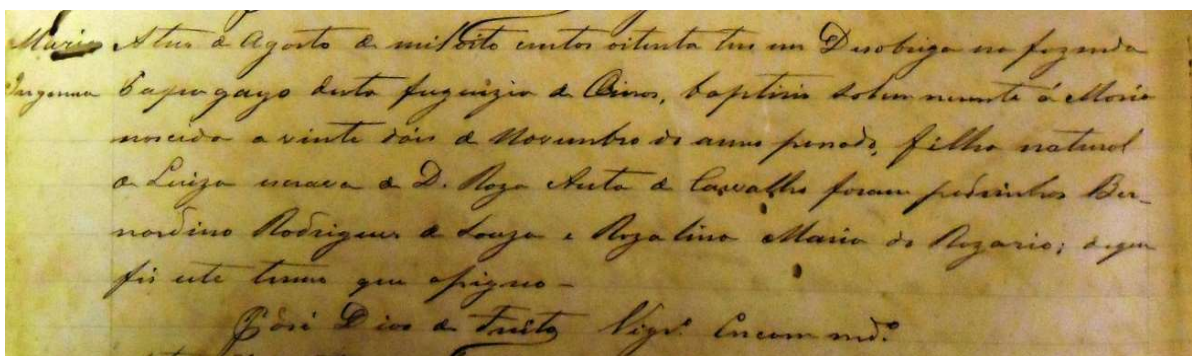 Maria A tres de Agosto de mil oito centos oitenta tres em Desobriga na fazenda
Ingenua Papagayo desta freguizia de Oeiras, baptisei solemnemente á Maria
nascida a vinte dois de Novembro do anno passado, filha natural
de Luiza escrava de D. Roza Auta de Carvalho foram padrinhos Ber-
nardino Rodrigues de Souza e Rozalina Maria do Rozario; do que
fis este termo que assigno -
José Dias de Freitas Vigrº. Encommdº.